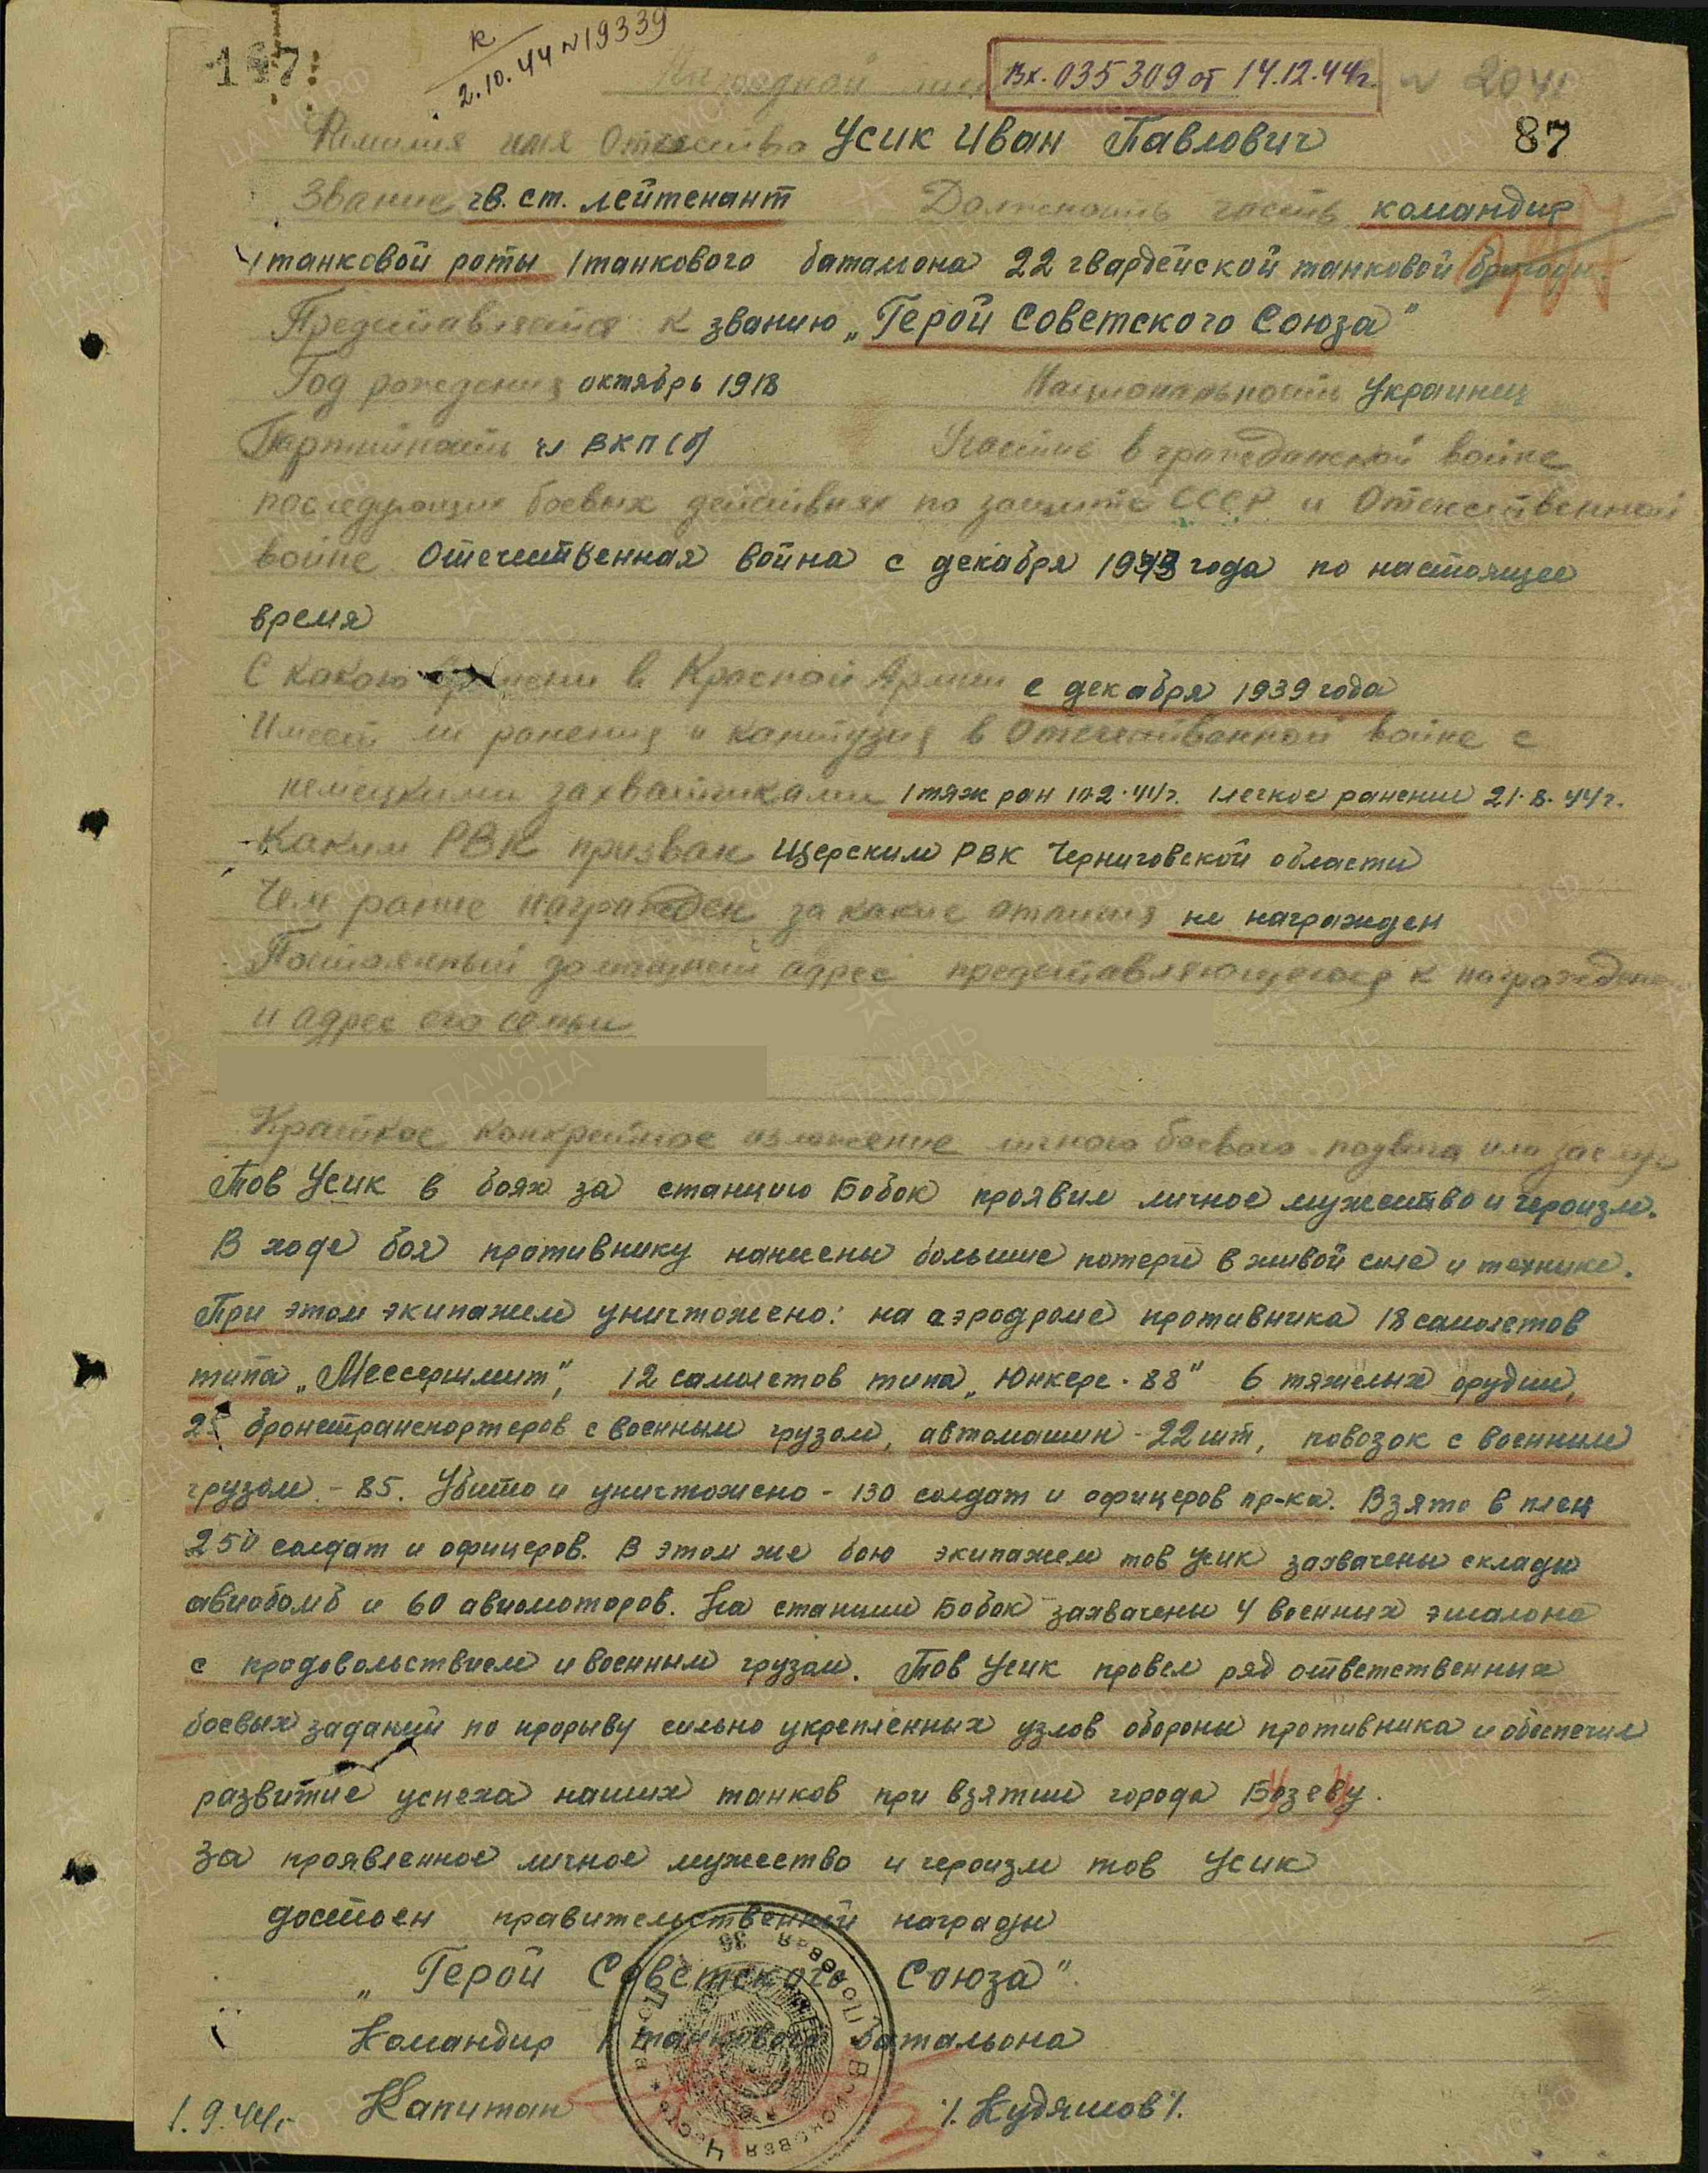 147.
к
2.10.44 №19339
Наградной лист
Вх. 035309 от 14.12.44г.
№ 2041
87
Фамилия имя Отчество Усик Иван Павлович
Звание гв. ст. лейтенант Должность часть командир
1 танковой роты 1 танкового батальона 22 гвардейской танковой бригады.
Представляется к званию „Герой Советского Союза"
Год рождения октябрь 1918 Национальность Украинец
Партийность чл ВКП(б) Участие в гражданской войне
последующих боевых действиях по защите СССР и Отечественной
войне Отечественная война с декабря 1943 года по настоящее
время
С какого времени в Красной Армии с декабря 1939 года
Имеет ли ранения и контузия в Отечественной войне с
немецкими захватчиками 1 тяж ран 10.2.44г. 1 легкое ранение 21.8.44г.
Каким РВК призван Щерским РВК Черниговской области
Чем ранее награжден за какие отличия не награжден
Постоянный домашний адрес представляющегося к награждению
и адрес его семьи
Краткое конкретное изложение личного боевого подвига или заслуг
Тов Усик в боях за станцию Бобок проявил личное мужество и героизм.
В ходе боя противнику нанесены большие потери в живой силе и технике.
При этом экипажем уничтожено: на аэродроме противника 18 самолетов
типа „Мессершмит", 12 самолетов типа „Юнкерс-88" 6 тяжелых орудий,
25 бронетранспортеров с военным грузом, автомашин - 22 шт, повозок с военным
грузом - 85. Убито и уничтожено - 130 солдат и офицеров пр-ка. Взято в плен
250 солдат и офицеров. В этом же бою экипажем тов Усик захвачены склады
авиабомб и 60 авиомоторов. На станции Бобок захвачены 4 военных эшалона
с продовольствием и военным грузом. Тов Усик провел ряд ответственных
боевых заданий по прорыву сильно укрепленных узлов обороны противника и обеспечил
развитие успеха наших танков при взятии города Бозеву.
За проявленное личное мужество и героизм тов Усик
достоен правительственной награды
„Герой Советского Союза".
Командир 1 танкового батальона
1.9.44г. Капитан /Кудяшов/.